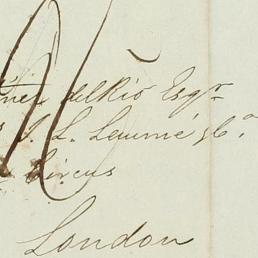 del Rio Esqr
J. L. Lemmé & Co
Circus
London